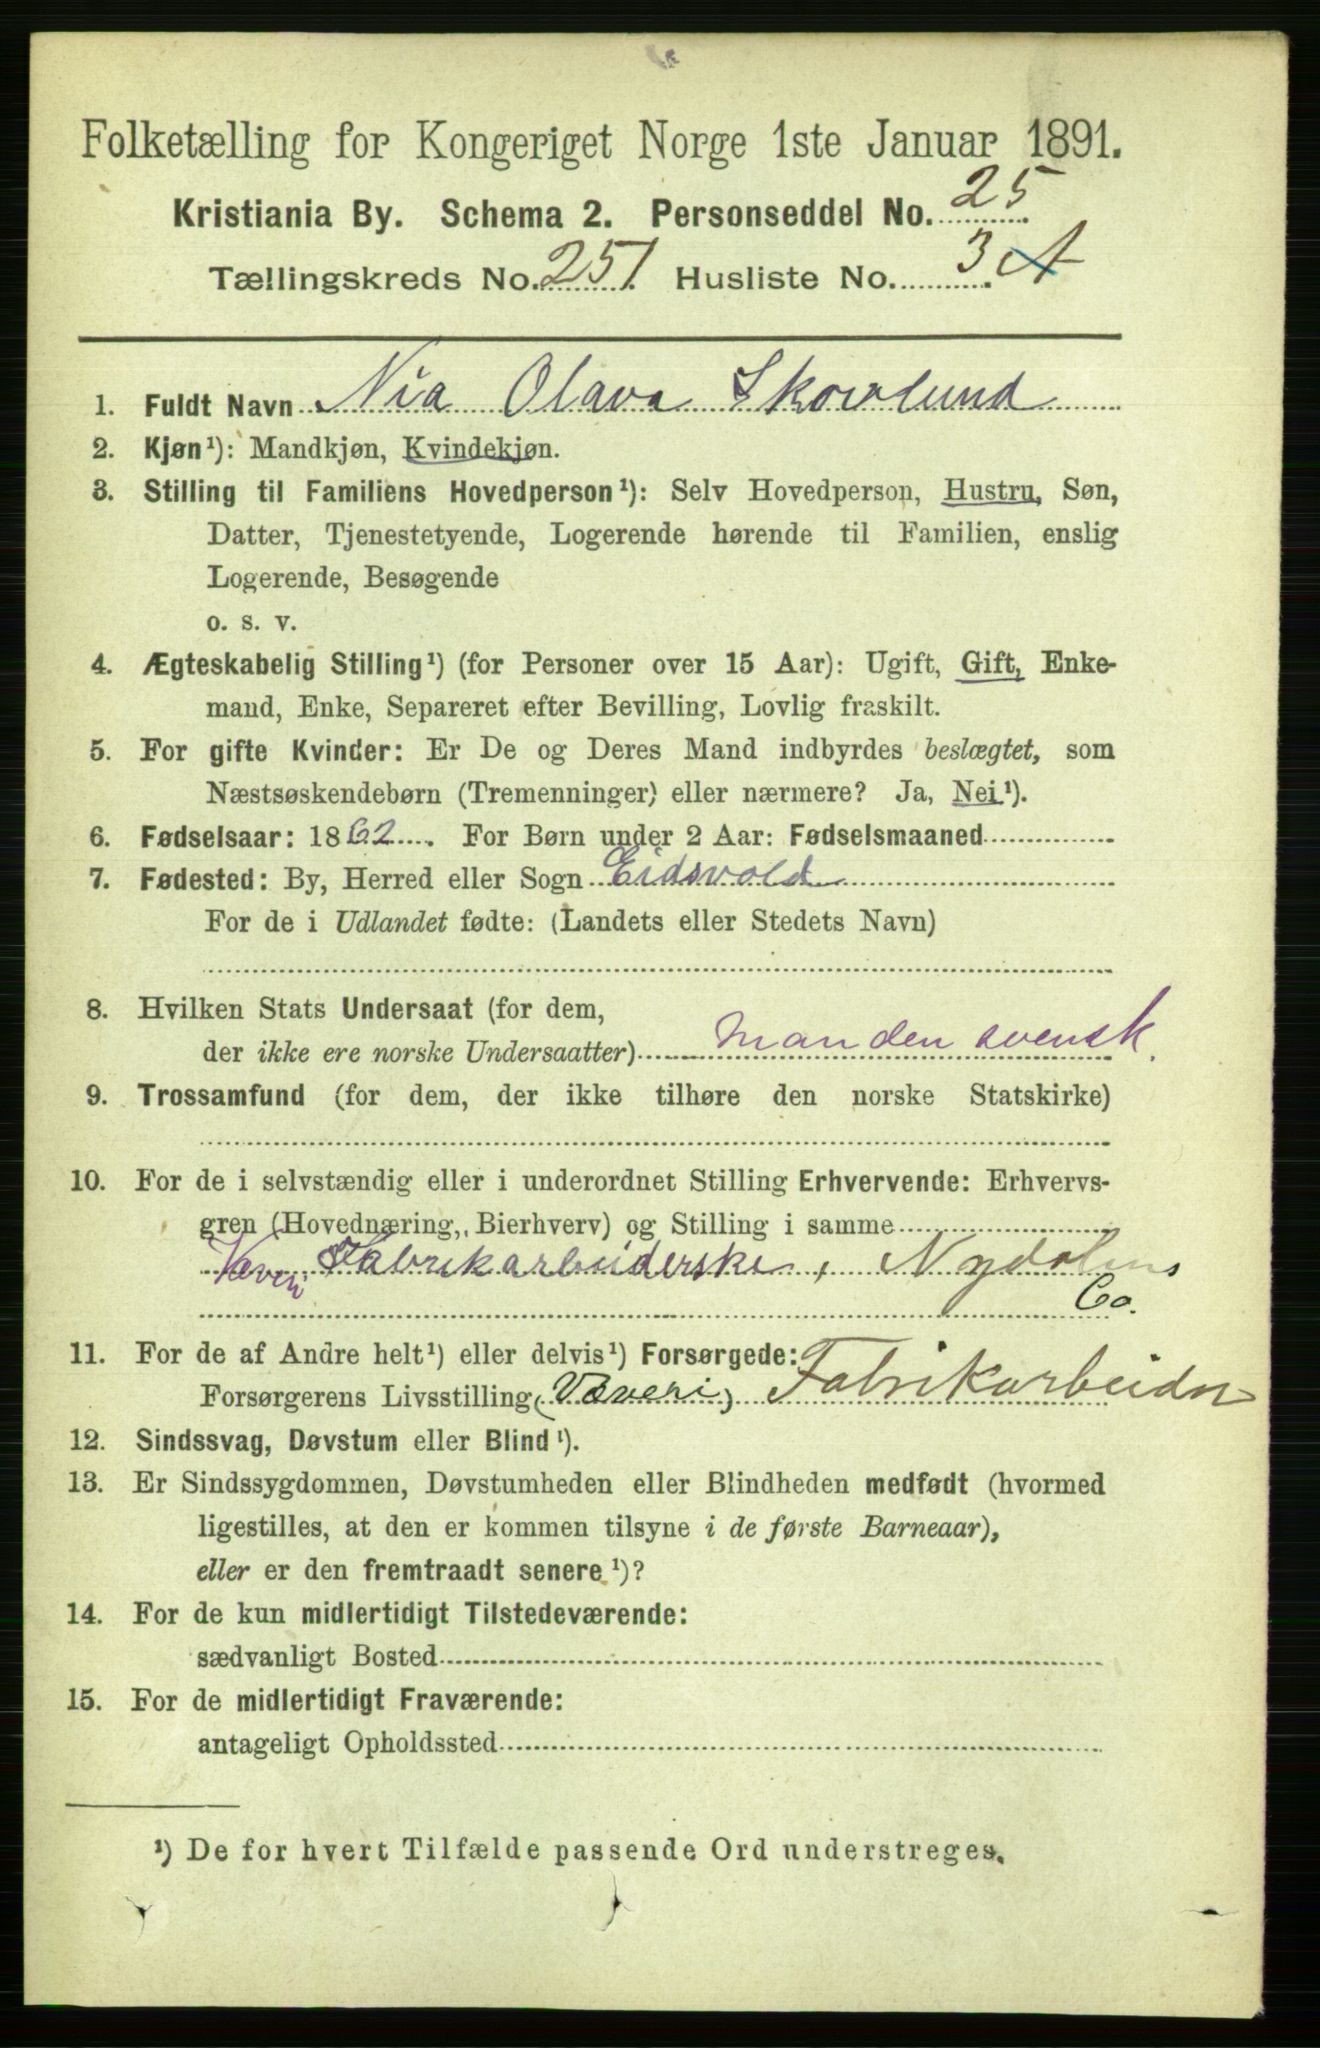 Folketælling for Kongeriget Norge 1ste Januar 1891.
Kristiania By. Schema 2. Personseddel No. 25
Tællingskreds No. 251 Husliste No. 3 A
1. Fuldt Navn Nia Olava Skovlund
2. Kjøn¹): Mandkjøn, Kvindekjøn.
3. Stilling til Familiens Hovedperson¹): Selv Hovedperson, Hustru, Søn,
Datter, Tjenestetyende, Logerende hørende til Familien, enslig
Logerende, Besøgende
o. s. v.
4. Ægteskabelig Stilling¹) (for Personer over 15 Aar): Ugift, Gift, Enke-
mand, Enke, Separeret efter Bevilling, Lovlig fraskilt.
5. For gifte Kvinder: Er De og Deres Mand indbyrdes beslægtet, som
Næstsøskendebørn (Tremenninger) eller nærmere? Ja, Nei¹).
6. Fødselsaar: 1862. For Børn under 2 Aar: Fødselsmaaned
7. Fødested: By, Herred eller Sogn Eidsvold
For de i Udlandet fødte: (Landets eller Stedets Navn)
8. Hvilken Stats Undersaat (for dem,
der ikke ere norske Undersaatter) manden svensk.
9. Trossamfund (for dem, der ikke tilhøre den norske Statskirke)
10. For de i selvstændig eller i underordnet Stilling Erhvervende: Erhvervs-
gren (Hovednæring, Bierhverv) og Stilling i samme
Væveri Fabrikarbeiderske, Nydalens
Co.
11. For de af Andre helt¹) eller delvis¹) Forsørgede:
Forsørgerens Livsstilling (Væveri) Fabrikarbeider
12. Sindssvag, Døvstum eller Blind¹).
13. Er Sindssygdommen, Døvstumheden eller Blindheden medfødt (hvormed
ligestilles, at den er kommen tilsyne i de første Barneaar),
eller er den fremtraadt senere¹)?
14. For de kun midlertidigt Tilstedeværende:
sædvanligt Bosted
15. For de midlertidigt Fraværende:
antageligt Opholdssted
¹) De for hvert Tilfælde passende Ord understreges.